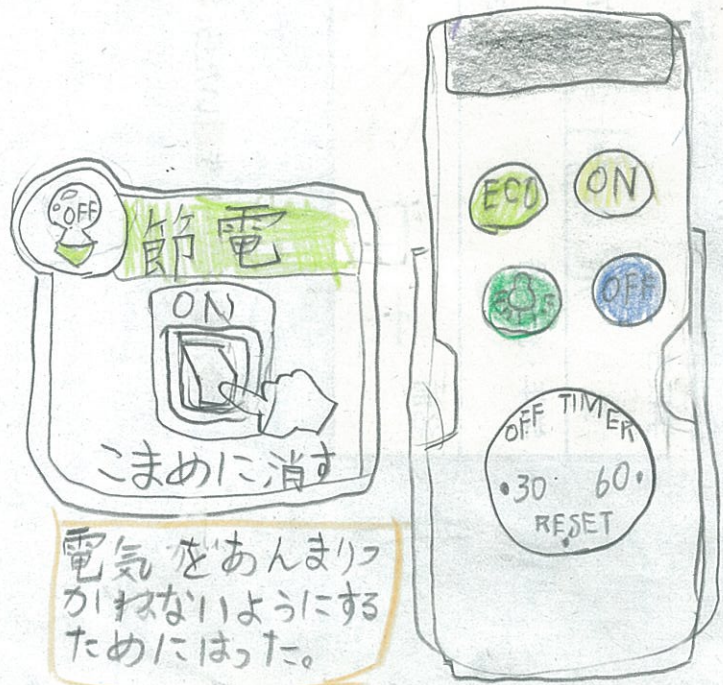 OFF
節電
ON
こまめに消す
電気をあんまりつ
かわないようにする
ためにはった。
ECO
ON
OFF
OFF TIMER
30 60
RESET